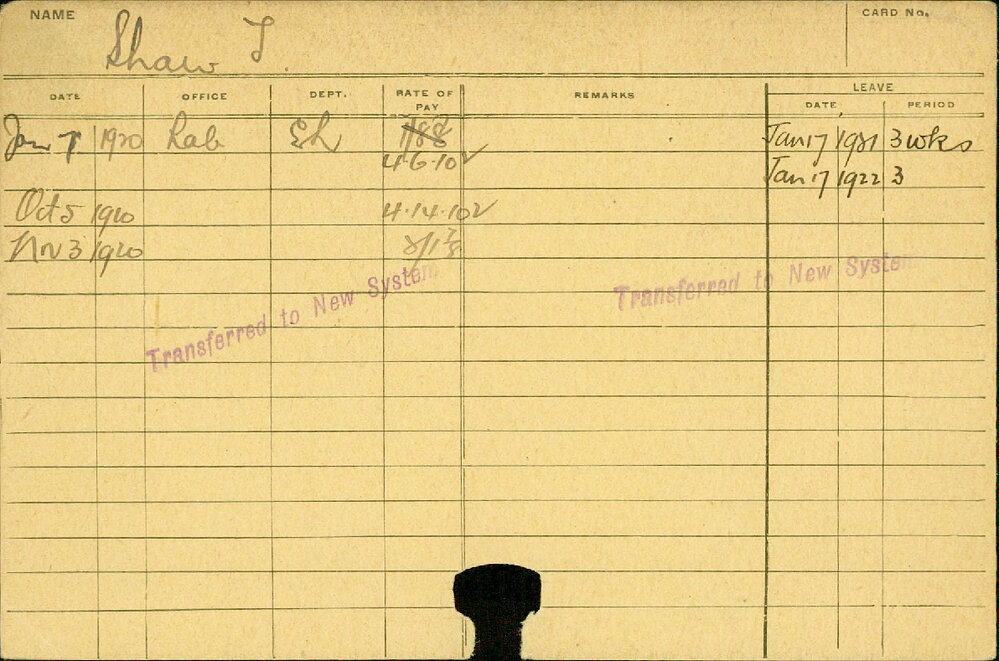 NAME Shaw T. CARD No.
DATE OFFICE DEPT. RATE OF PAY REMARKS LEAVE
DATE PERIOD
Jan 7 1920 Lab EL Jan 17 1921 3 wks
4.6.10 Jan 17 1922 3
Oct 5 1920 4.14.10
Nov 3 1920 2/1 7/8
Transferred to New System
Transferred to New System